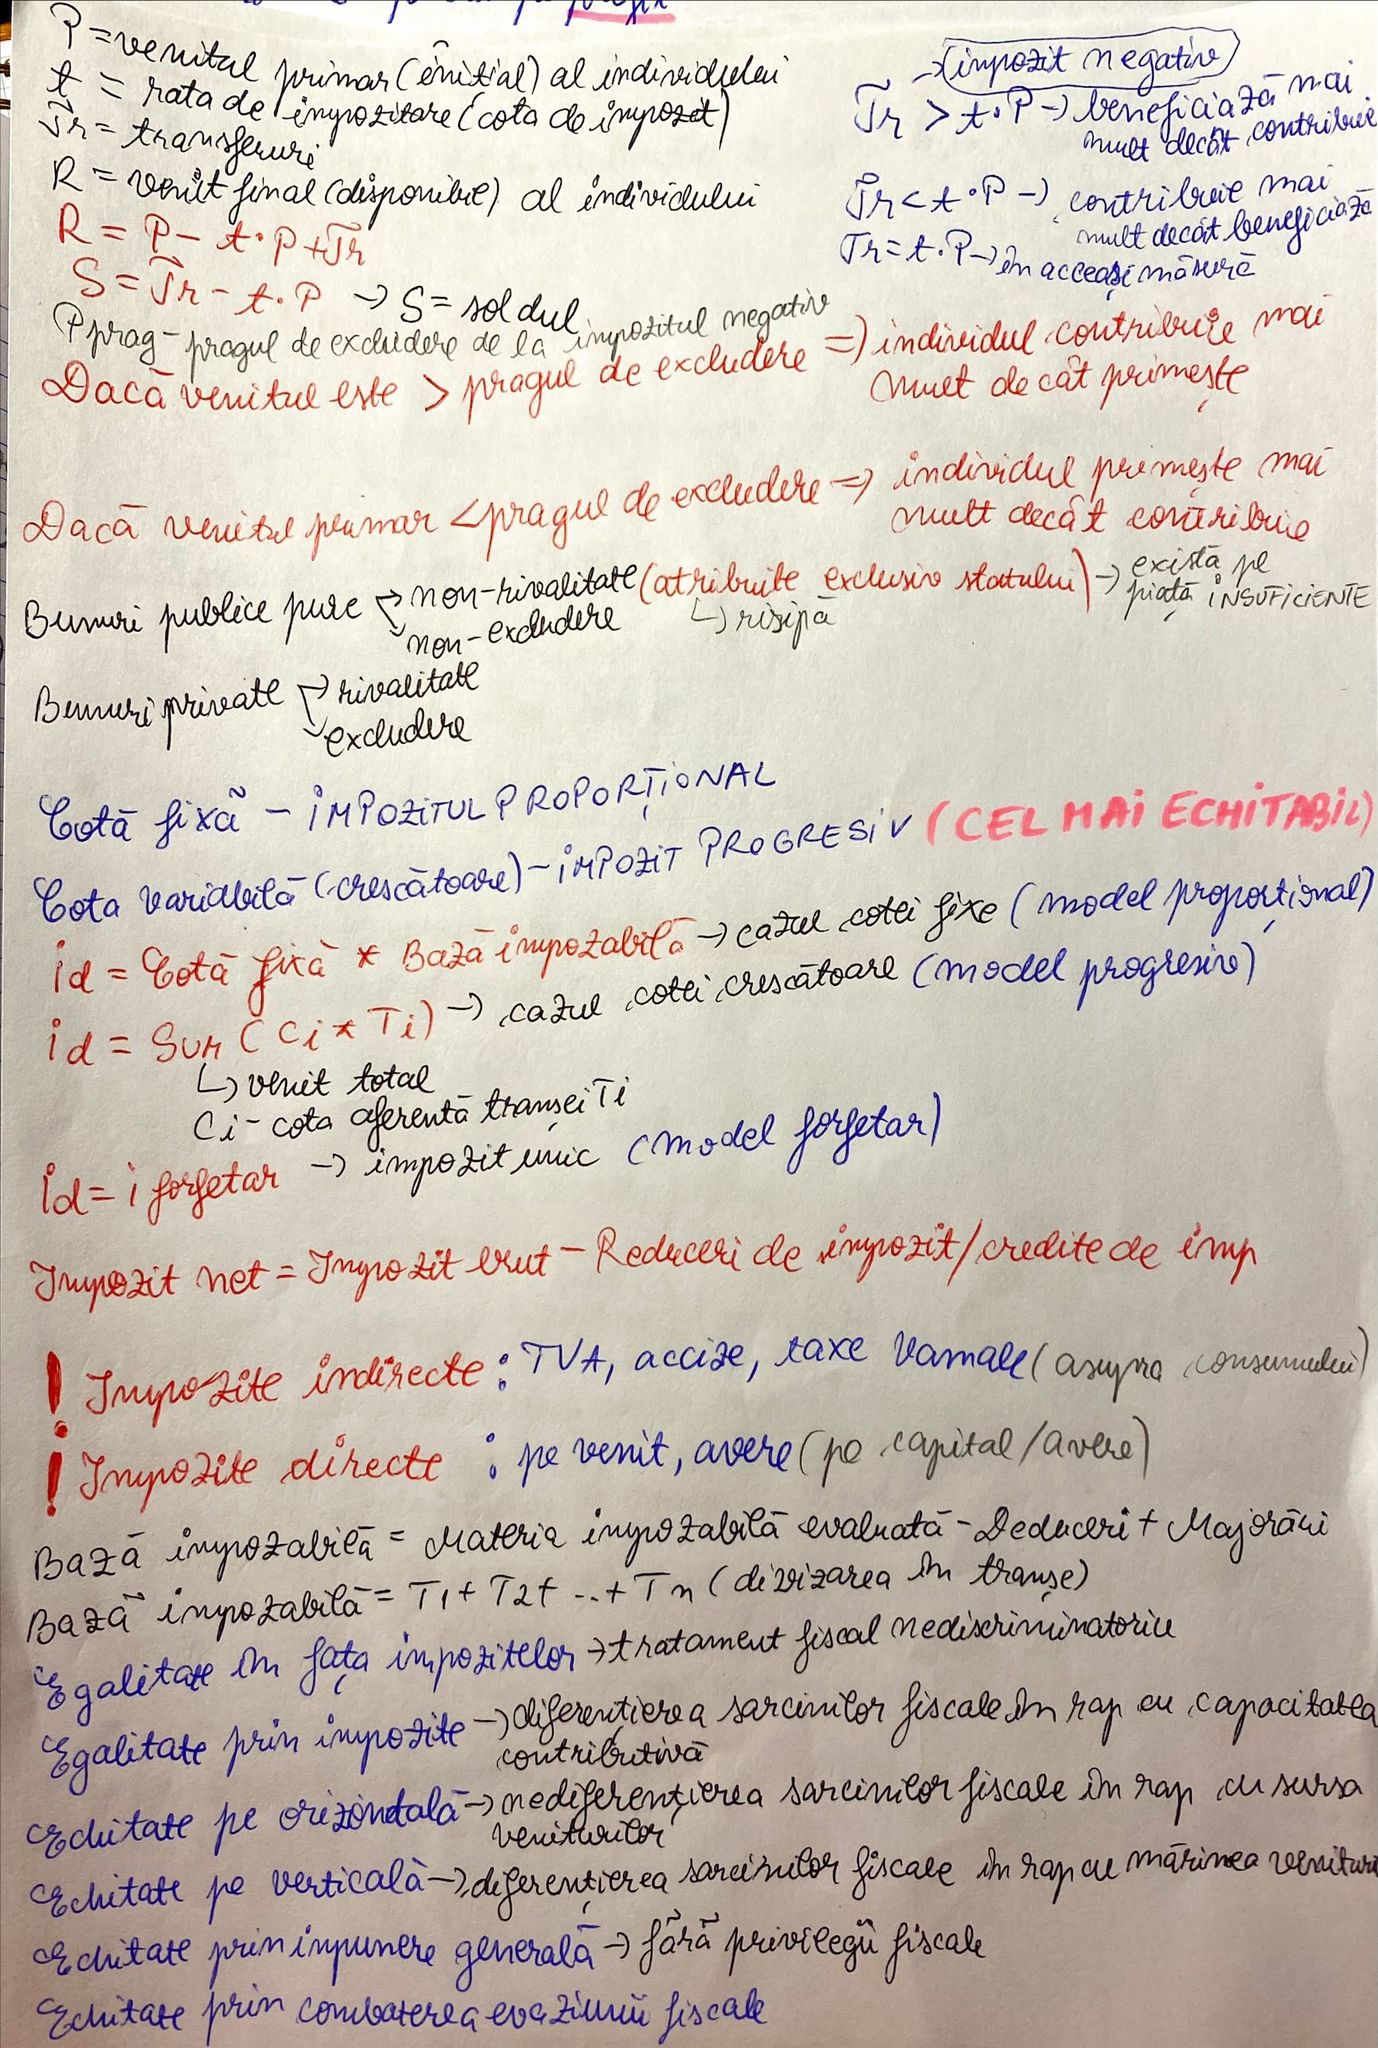 P = venitul primar (inițial) al individului
t = rata de impozitare (cota de impozit)
Tr = transferuri
R = venit final (disponibil) al individului
R = P - t·P + Tr
S = Tr - t·P → S = soldul
P prag - pragul de excludere de la impozitul negativ
→ (impozit negativ)
Tr > t·P → beneficiază mai
mult decât contribuie
Tr < t·P → contribuie mai
mult decât beneficiază
Tr = t·P → în aceeași măsură
Dacă venitul este > pragul de excludere => individul contribuie mai
mult decât primește
Dacă venitul primar < pragul de excludere => individul primește mai
mult decât contribuie
Bunuri publice pure → non-rivalitate (atribuite exclusiv statului) → există pe
piață INSUFICIENTE
→ non-excludere
↳ risipă
Bunuri private → rivalitate
→ excludere
Cotă fixă - IMPOZITUL PROPORȚIONAL
Cota variabilă (crescătoare) - IMPOZIT PROGRESIV (CEL MAI ECHITABIL)
id = Cotă fixă * Bază impozabilă → cazul cotei fixe (model proporțional)
id = Sum (Ci * Ti) → cazul cotei crescătoare (model progresiv)
↳ venit total
Ci - cota aferentă tranșei Ti
id = i forfetar → impozit unic (model forfetar)
Impozit net = Impozit brut - Reduceri de impozit/credite de imp
! Impozite indirecte : TVA, accize, taxe vamale (asupra consumului)
! Impozite directe : pe venit, avere (pe capital/avere)
Bază impozabilă = Materia impozabilă evaluată - Deduceri + Majorări
Bază impozabilă = T1 + T2 + ... + Tn (divizarea în tranșe)
Egalitate în fața impozitelor → tratament fiscal nediscriminatoriu
Egalitate prin impozite → diferențierea sarcinilor fiscale în rap cu capacitatea
contributivă
Echitate pe orizontală → nediferențierea sarcinilor fiscale în rap cu sursa
veniturilor
Echitate pe verticală → diferențierea sarcinilor fiscale în rap cu mărimea venituri
Echitate prin impunere generală → fără privilegii fiscale
Echitate prin combaterea evaziunii fiscale